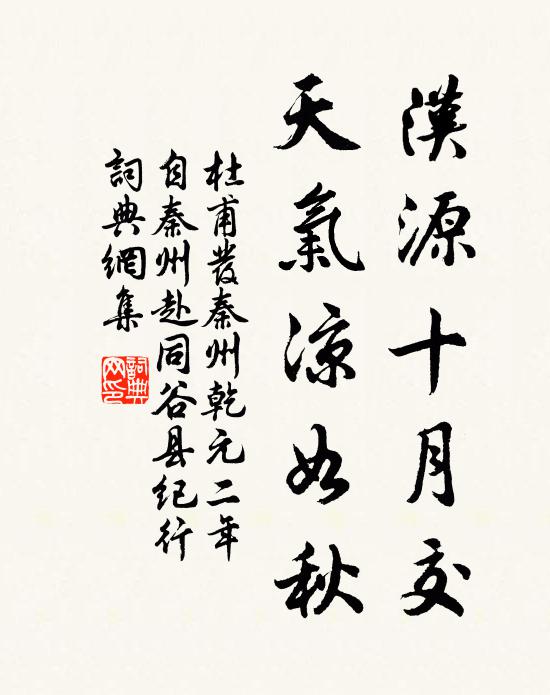 漢源十月交
天氣涼如秋
杜甫發秦州乾元二年
自秦州赴同谷县纪行
詞典網集
詞典网印